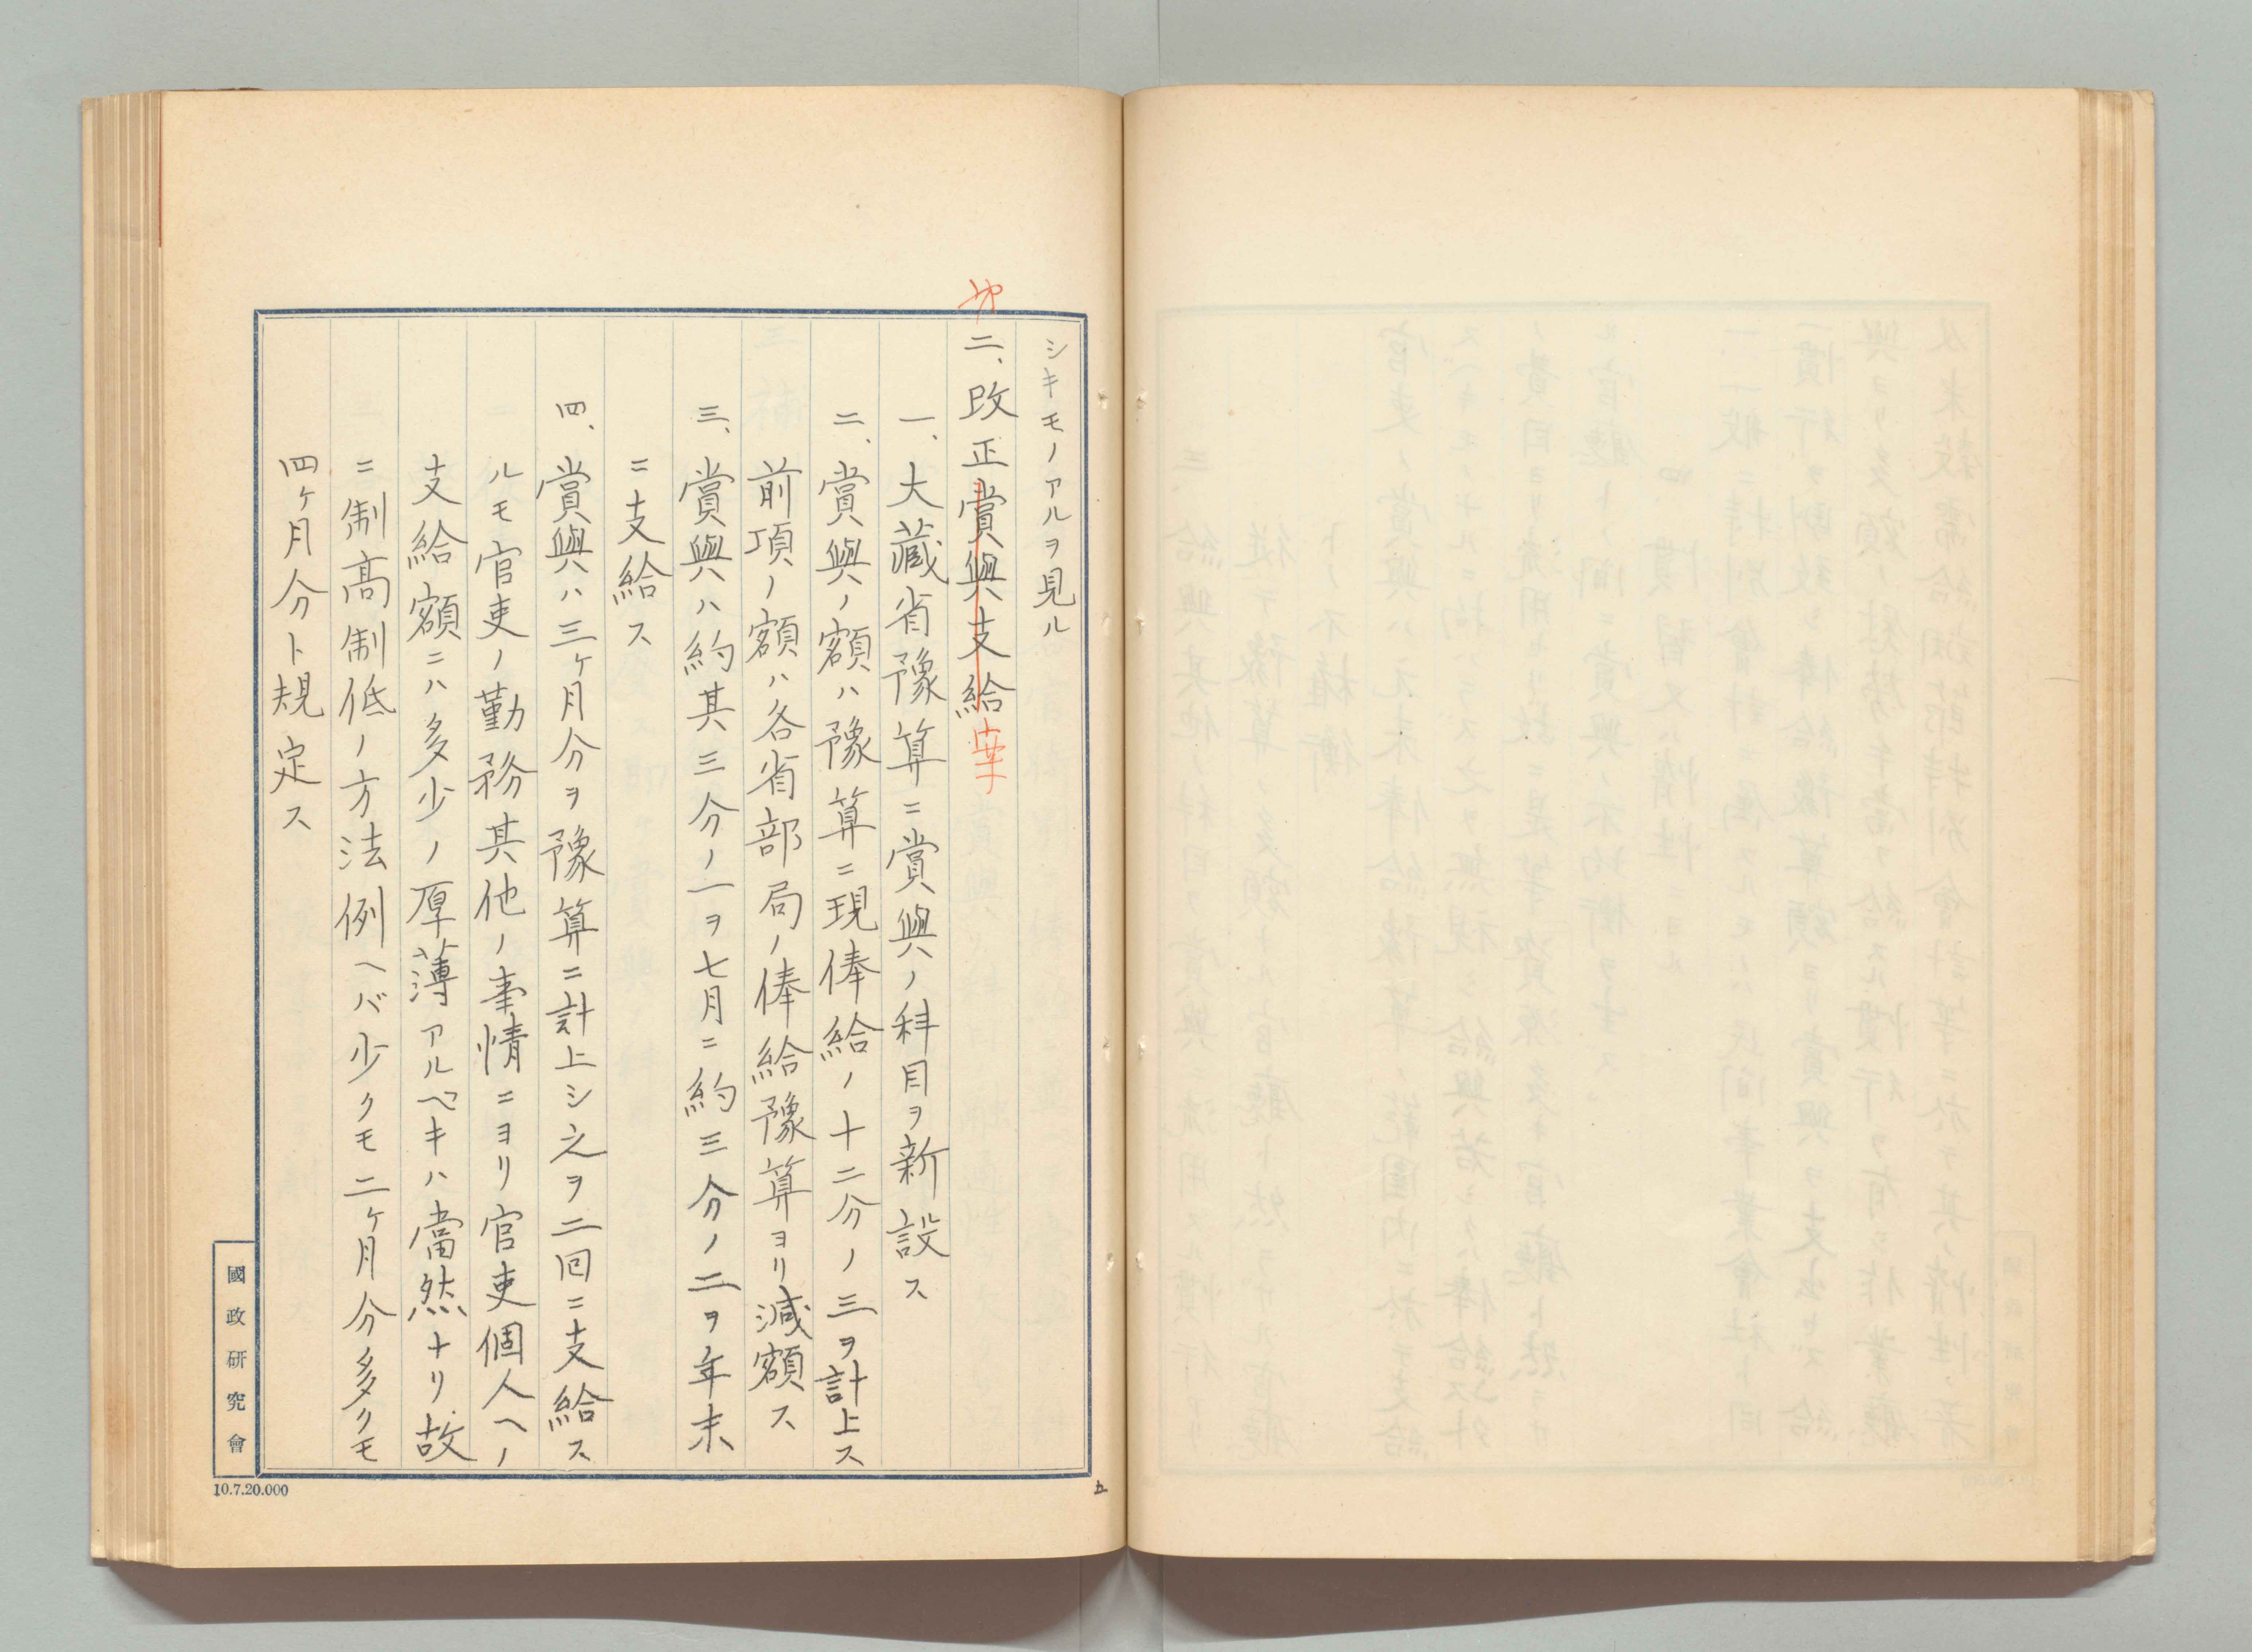 シキモノアルヲ見ル
二、改正賞與支給案
一、大藏省豫算ニ賞與ノ科目ヲ新設ス
二、賞與ノ額ハ豫算ニ現俸給ノ十二分ノ三ヲ計上ス
前項ノ額ハ各省部局ノ俸給豫算ヨリ減額ス
三、賞與ハ約其三分ノ一ヲ七月ニ約三分ノ二ヲ年末
ニ支給ス
四、賞與ハ三ヶ月分ヲ豫算ニ計上シ之ヲ二回ニ支給ス
ルモ官吏ノ勤務其他ノ事情ニヨリ官吏個人ヘノ
支給額ニハ多少ノ厚薄アルベキハ當然ナリ故
ニ制高制低ノ方法例ヘバ少クモ二ヶ月分多クモ
四ヶ月分ト規定ス
五
國政研究會
10.7.20.000